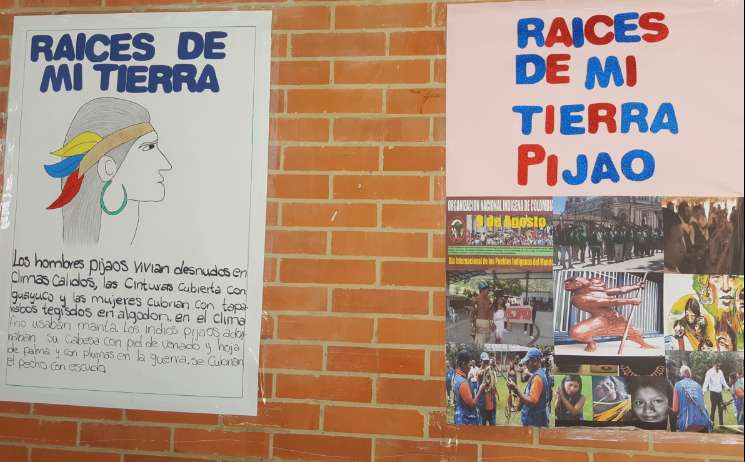 RAICES DE
MI TIERRA
Los hombres pijaos vivian desnudos en
climas calidos, las cinturas cubierta con
guayuco y las mujeres cubrian con tapa
rabos tegisdos en algodon. en el clima
frio usaban manta. Los indios pijaos ador
naban su cabesa con piel de venado y hoja
de palma y con plumas en la guerra, se cubrian
el pecho con escudo.
RAICES
DE MI
TIERRA
PIJAO
ORGANIZACION NACIONAL INDIGENA DE COLOMBIA
9 de Agosto
Dia Internacional de los Pueblos Indigenas del Mundo